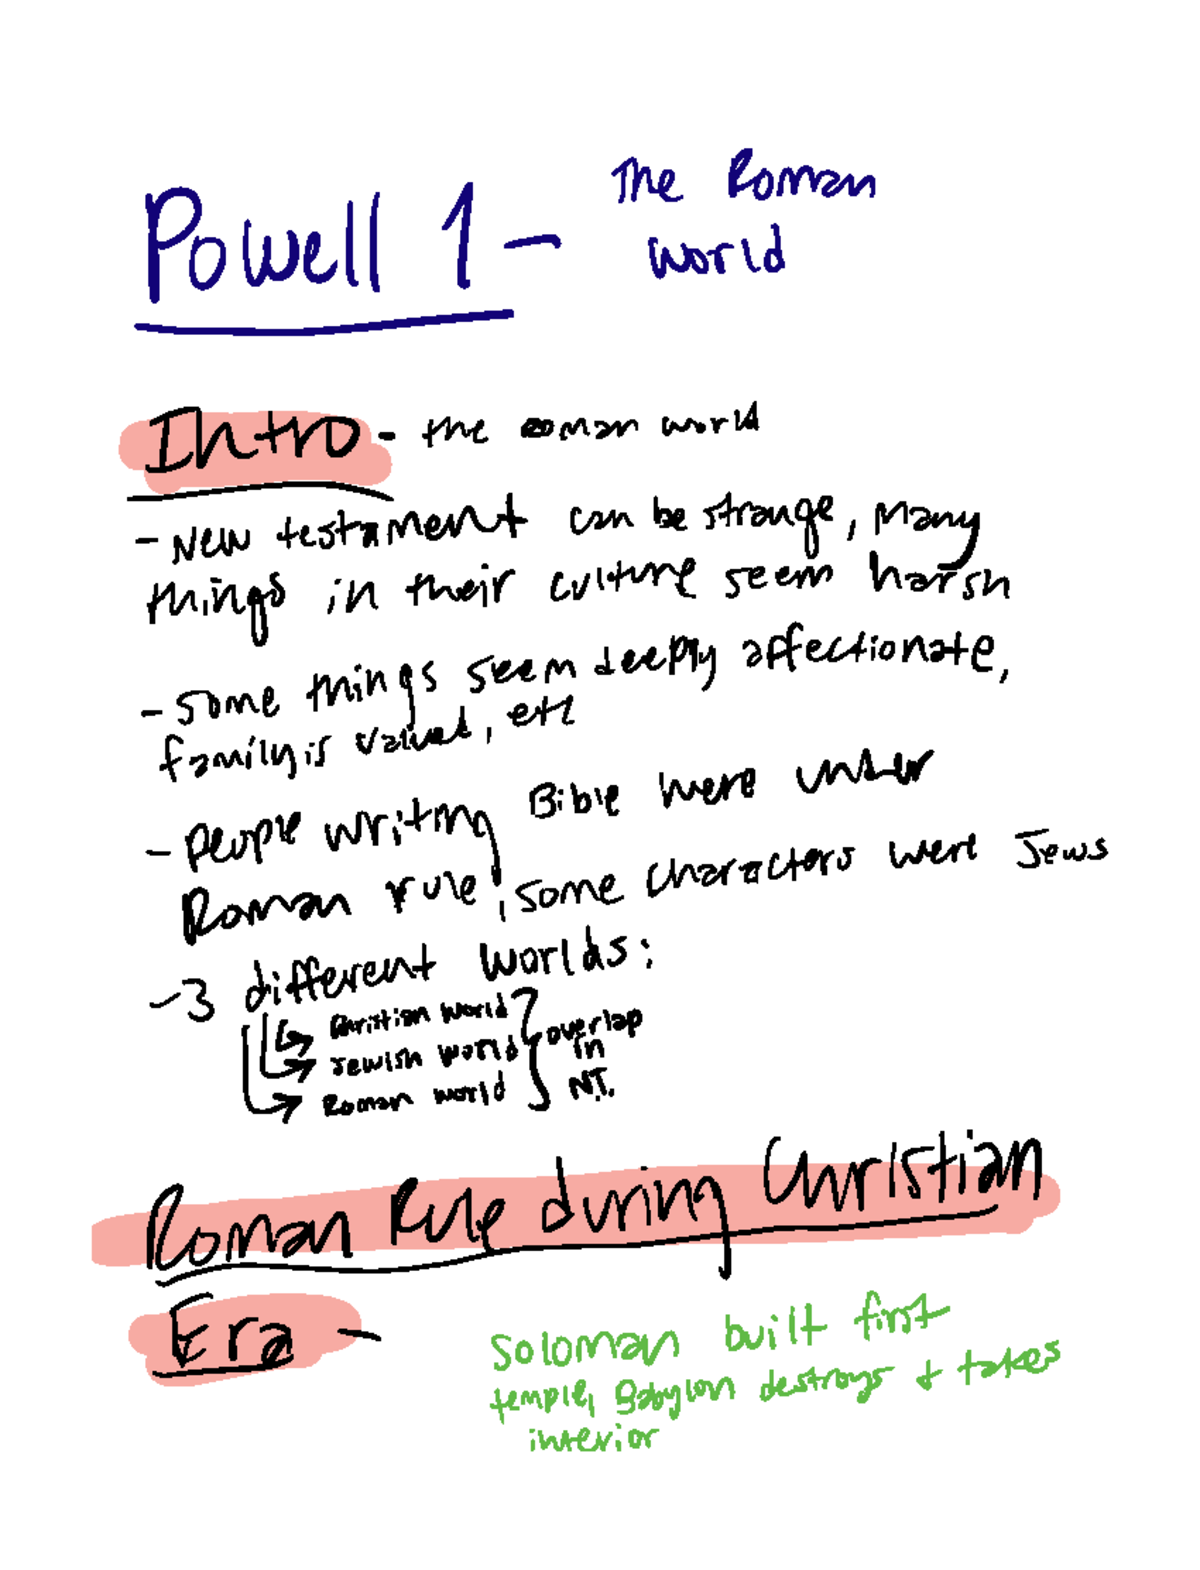 Powell 1 - The Roman
World
Intro - the Roman world
- New testament can be strange, many
things in their culture seem harsh
- Some things seem deeply affectionate,
family is valued, etc
- People writing Bible were under
Roman rule, some characters were Jews
- 3 different worlds:
Christian world
Jewish world
Roman world
overlap
in
N.T.
Roman Rule during Christian
Era -
Soloman built first
temple, Babylon destroys + takes
interior